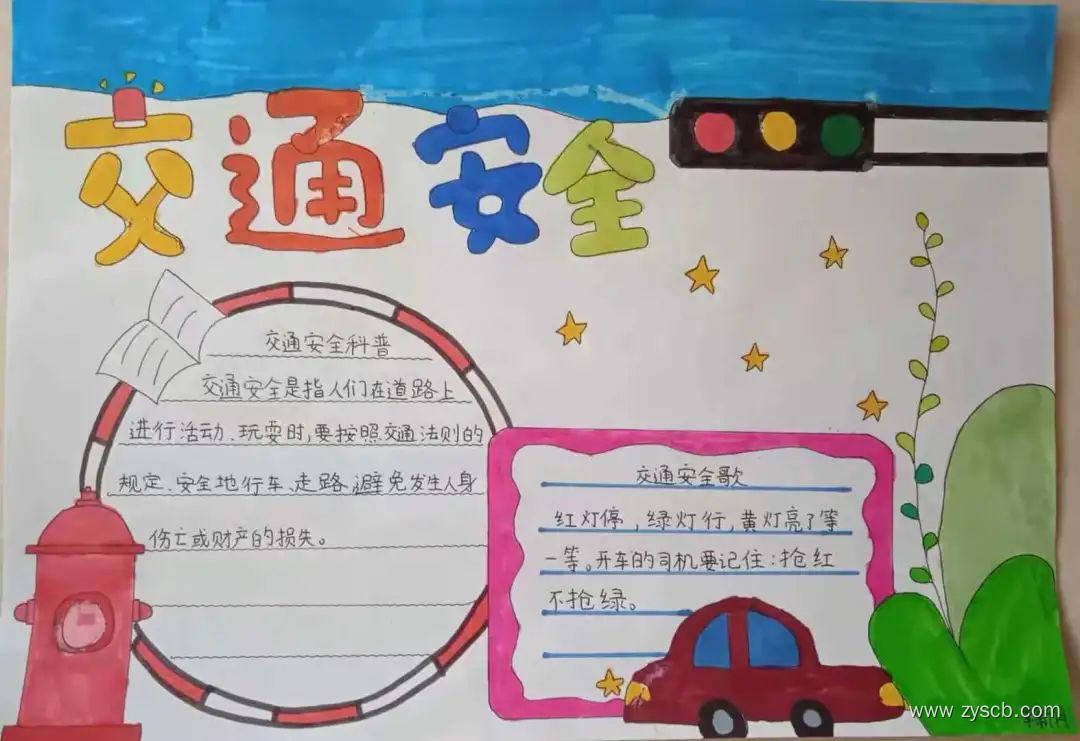 交通安全
交通安全科普
交通安全是指人们在道路上
进行活动、玩耍时,要按照交通法则的
规定、安全地行车、走路,避免发生人身
伤亡或财产的损失。
交通安全歌
红灯停,绿灯行,黄灯亮了等
一等。开车的司机要记住:抢红
不抢绿。
www.zyscb.com